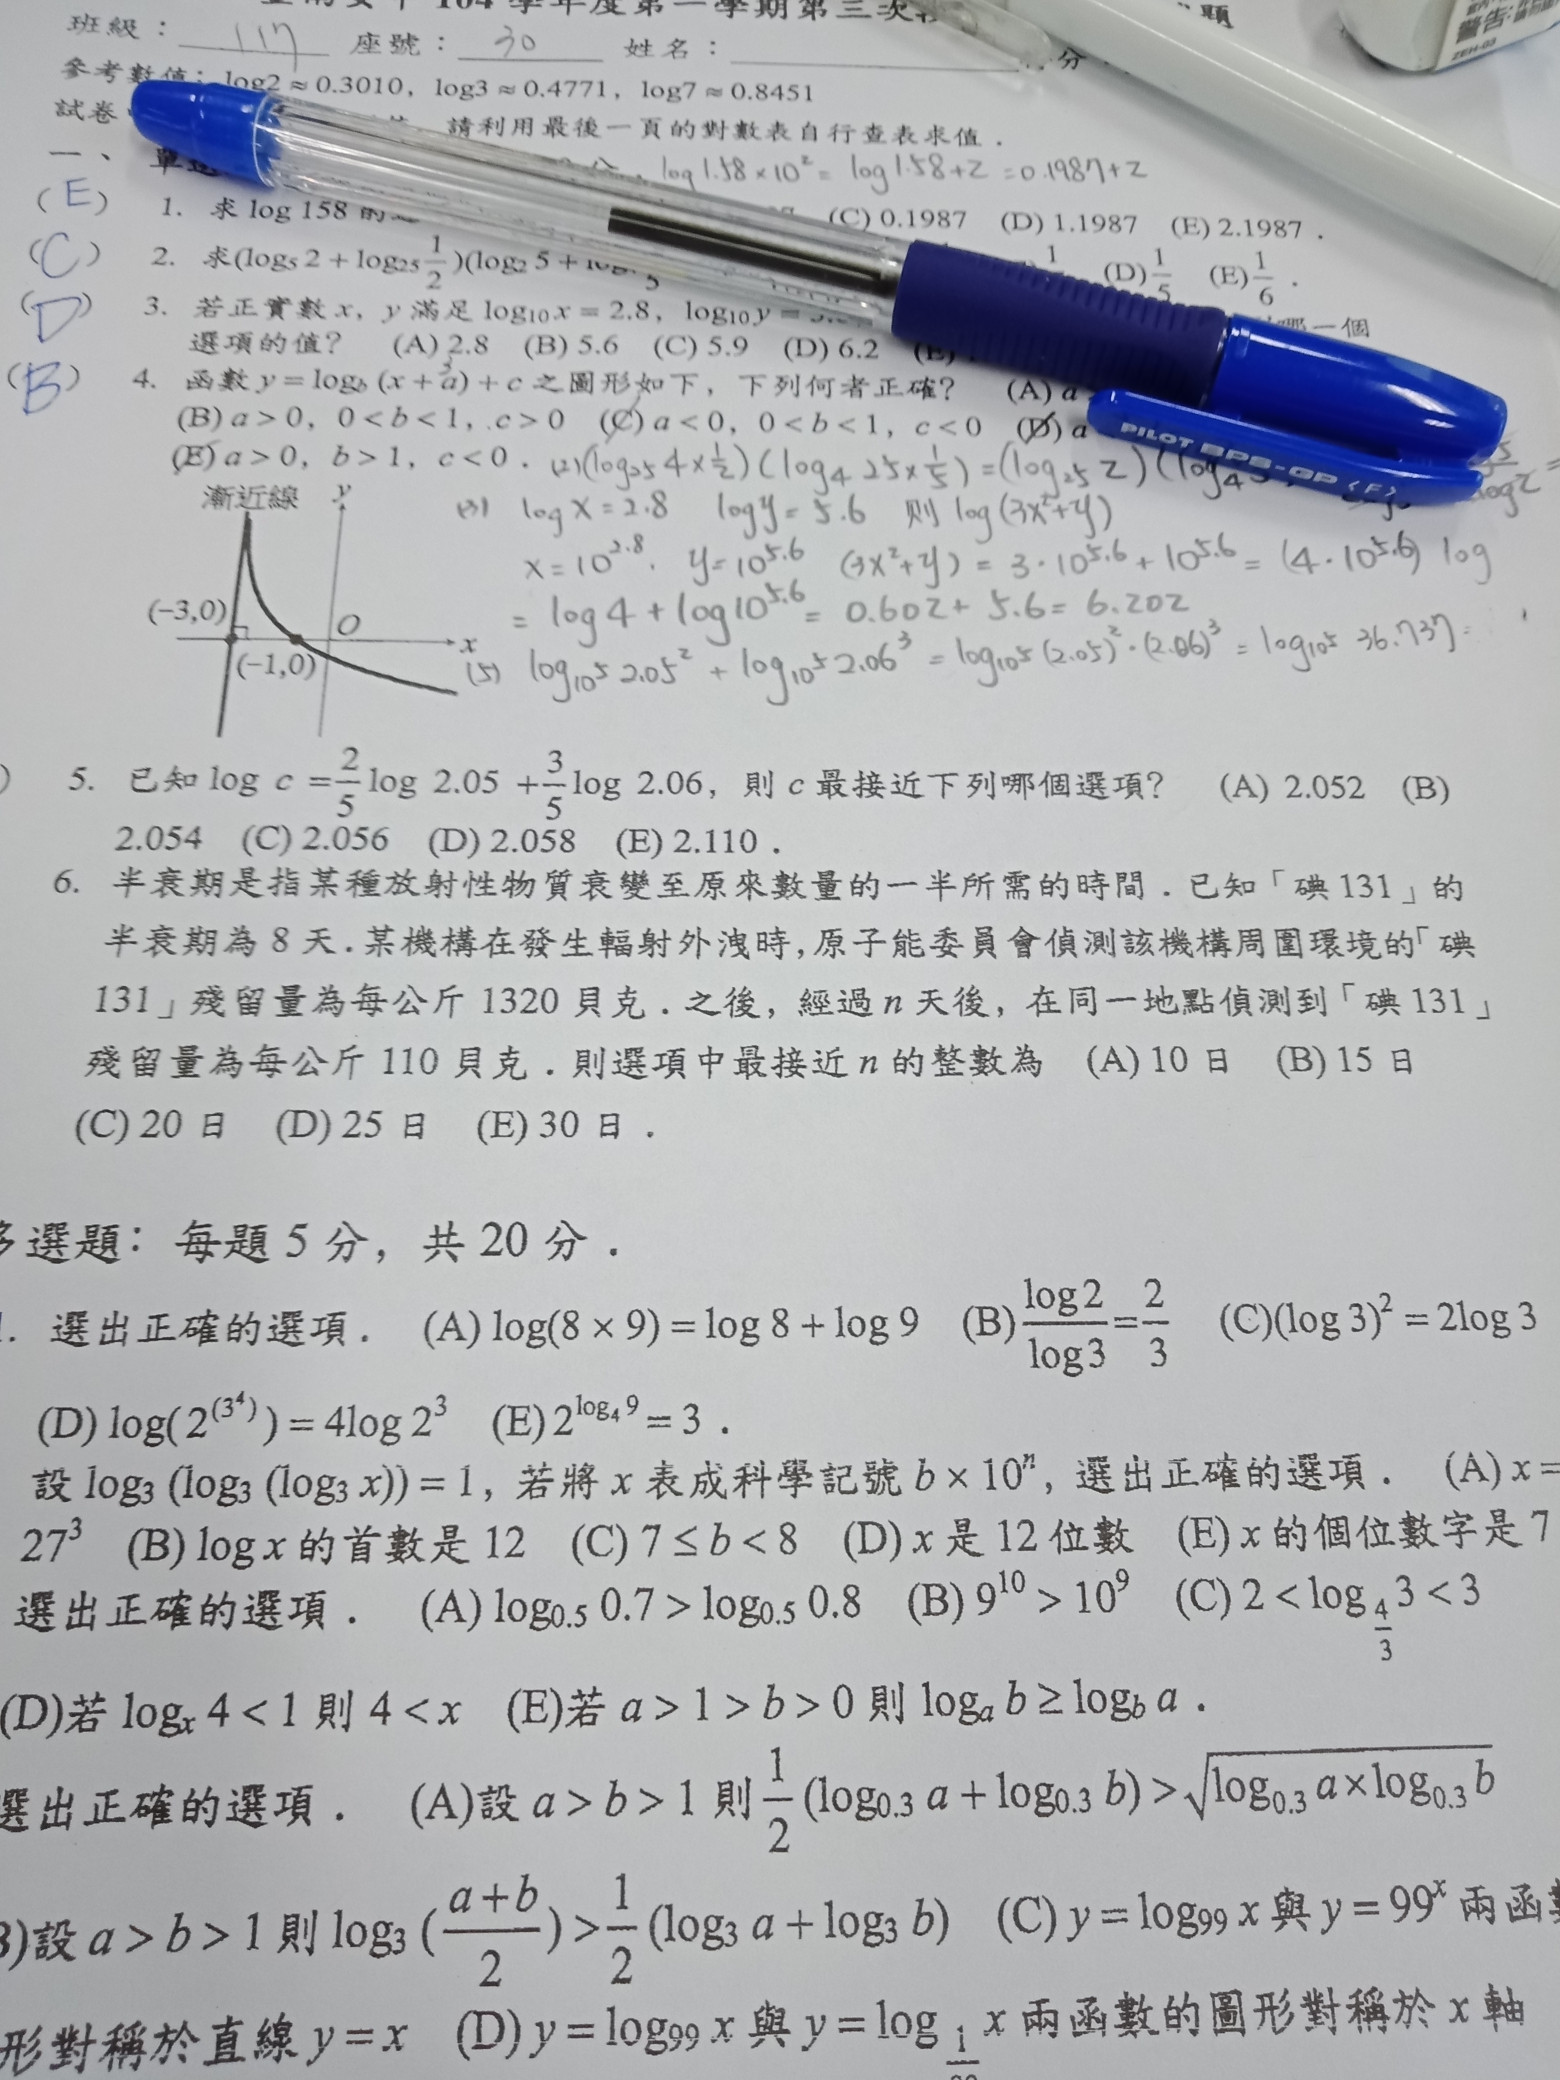 104 學年度第一學期第三次 題
班級： 117 座號： 30 姓名： 分
參考數值：log2 ≈ 0.3010，log3 ≈ 0.4771，log7 ≈ 0.8451
試卷 請利用最後一頁的對數表自行查表求值．
一、 單選 log 1.58×10² = log 1.58+2 = 0.1987+2
(E) 1. 求 log 158 的 (C) 0.1987 (D) 1.1987 (E) 2.1987．
(C) 2. 求(log₅ 2 + log₂₅ 1/2)(log₂ 5 + 1/5 (D) 1/5 (E) 1/6．
(D) 3. 若正實數 x，y 滿足 log₁₀ x = 2.8，log₁₀ y = 哪一個
選項的值？ (A) 2.8 (B) 5.6 (C) 5.9 (D) 6.2 (E)
(B) 4. 函數 y = log_b (x + a) + c 之圖形如下，下列何者正確？ (A) a
(B) a > 0，0 < b < 1，c > 0 (C) a < 0，0 < b < 1，c < 0 (D) a
(E) a > 0，b > 1，c < 0．
(2) (log₂₅ 4×1/2)(log₄ 25×1/5) = (log₂₅ 2)(log₄
漸近線 y
(3) log x = 2.8 log y = 5.6 則 log(3x²+y)
x = 10^2.8. y = 10^5.6 (3x²+y) = 3·10^5.6 + 10^5.6 = (4·10^5.6) log
= log 4 + log 10^5.6 = 0.602 + 5.6 = 6.202
(-3,0) O x
(-1,0)
(5) log₁₀5 2.05² + log₁₀5 2.06³ = log₁₀5 (2.05)²·(2.06)³ = log₁₀5 36.737 =
) 5. 已知 log c = 2/5 log 2.05 + 3/5 log 2.06，則 c 最接近下列哪個選項？ (A) 2.052 (B)
2.054 (C) 2.056 (D) 2.058 (E) 2.110．
6. 半衰期是指某種放射性物質衰變至原來數量的一半所需的時間．已知「碘 131」的
半衰期為 8 天．某機構在發生輻射外洩時，原子能委員會偵測該機構周圍環境的「碘
131」殘留量為每公斤 1320 貝克．之後，經過 n 天後，在同一地點偵測到「碘 131」
殘留量為每公斤 110 貝克．則選項中最接近 n 的整數為 (A) 10 日 (B) 15 日
(C) 20 日 (D) 25 日 (E) 30 日．
多選題：每題 5 分，共 20 分．
1. 選出正確的選項． (A) log(8 × 9) = log 8 + log 9 (B) log 2/log 3 = 2/3 (C)(log 3)² = 2log 3
(D) log(2^(3⁴)) = 4log 2³ (E) 2^log₄ 9 = 3．
設 log₃ (log₃ (log₃ x)) = 1，若將 x 表成科學記號 b × 10ⁿ，選出正確的選項． (A) x =
27³ (B) log x 的首數是 12 (C) 7 ≤ b < 8 (D) x 是 12 位數 (E) x 的個位數字是 7
選出正確的選項． (A) log₀.₅ 0.7 > log₀.₅ 0.8 (B) 9¹⁰ > 10⁹ (C) 2 < log_4/3 3 < 3
(D)若 logₓ 4 < 1 則 4 < x (E)若 a > 1 > b > 0 則 log_a b ≥ log_b a．
選出正確的選項． (A)設 a > b > 1 則 1/2 (log₀.₃ a + log₀.₃ b) > √(log₀.₃ a × log₀.₃ b)
B)設 a > b > 1 則 log₃ ((a+b)/2) > 1/2 (log₃ a + log₃ b) (C) y = log₉₉ x 與 y = 99ˣ 兩函數
形對稱於直線 y = x (D) y = log₉₉ x 與 y = log_1/99 x 兩函數的圖形對稱於 x 軸
PILOT BPS-GP <F>
警告:
ZEH-03